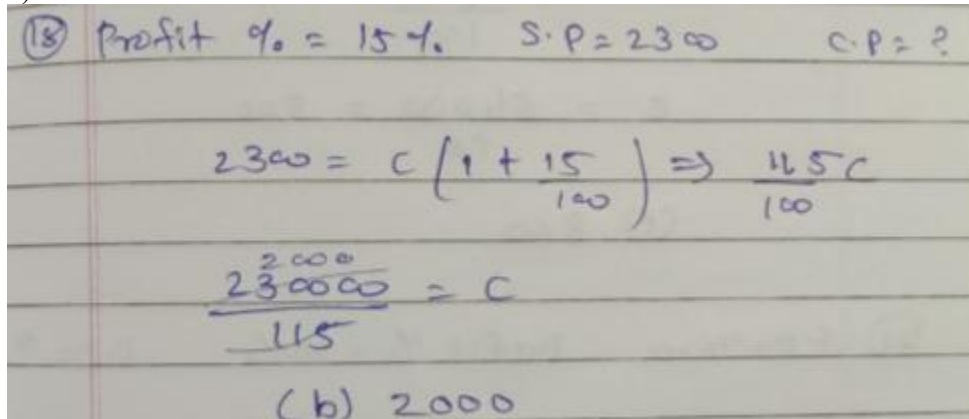 (18) Profit % = 15 %. S.P = 2300 C.P = ?
2300 = C (1 + 15/100) => 115C/100
2000
230000/115 = C
(b) 2000